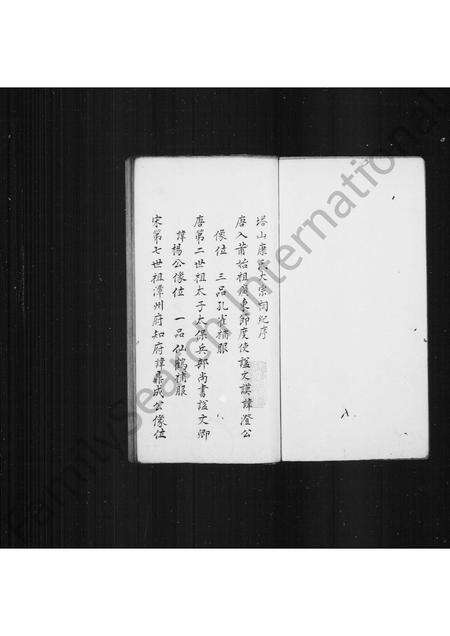 塔山康氏大宗祠紀序
唐入莆始祖廣東節度使諡文謨諱澄公
像位 三品孔雀補服
唐第二世祖太子太保兵部尚書諡文卿
諱楊公像位 一品仙鶴補服
宋第七世祖漳州府知府諱鼎成公像位
FamilySearch International